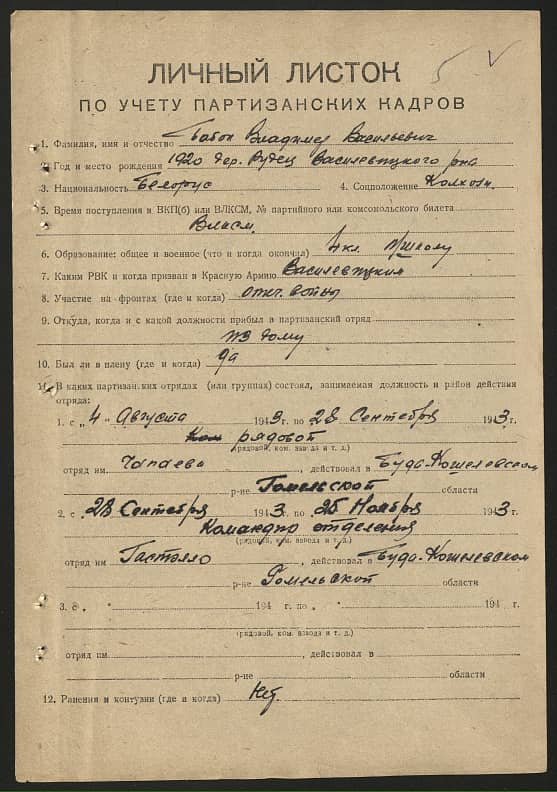 ЛИЧНЫЙ ЛИСТОК
ПО УЧЕТУ ПАРТИЗАНСКИХ КАДРОВ
1. Фамилия, имя и отчество Бабок Владимир Васильевич
2. Год и место рождения 1920 дер. Рудец Василевицкого р-на
3. Национальность Белорус 4. Соцположение Колхозн.
5. Время поступления в ВКП(б) или ВЛКСМ, № партийного или комсомольского билета
Власм.
6. Образование: общее и военное (что и когда окончил) 4 кл.
7. Каким РВК и когда призван в Красную Армию Василевицким
8. Участие на фронтах (где и когда) отеч. войы
9. Откуда, когда и с какой должности прибыл в партизанский отряд
из дому
10. Был ли в плену (где и когда) да
11. В каких партизанских отрядах (или группах) состоял, занимаемая должность и район действия
отряда:
1. с „4„ Августа 1943 г. по 28 Сентебря 1943 г.
рядовой
(рядовой, ком. взвода и т. д.)
отряд им. Чапаева, действовал в Буда-Кошелевском
р-не Гомельской области
2. с 28 Сентебря 1943 г. по 25 Ноября 1943 г.
отделения
(рядовой, ком. взвода и т. д.)
отряд им Гастолло, действовал в Буда-Кошелевском
р-не Гомельской области
3. с „ “ 194 г. по „ “ 194 г.
(рядовой, ком. взвода и т. д.)
отряд им , действовал в
р-не области
12. Ранения и контузии (где и когда) Нет.